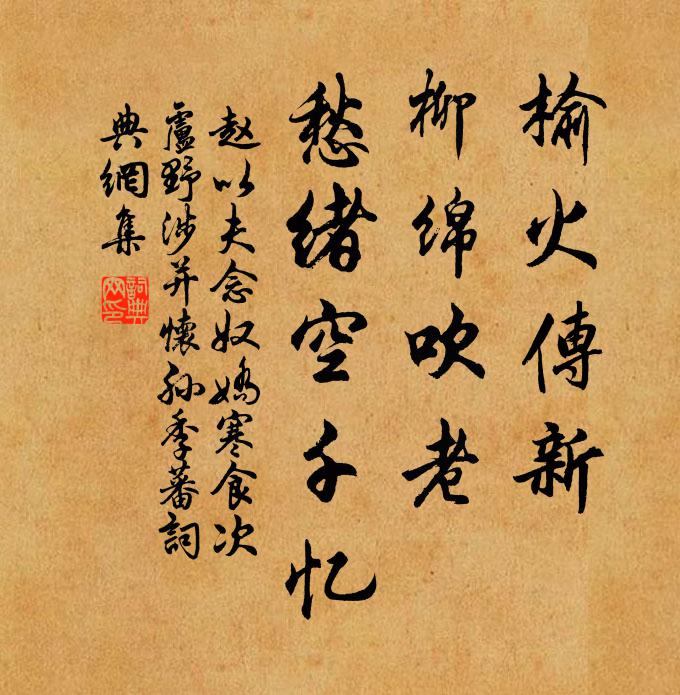 榆火傳新
柳綿吹老
愁緒空千忆
赵以夫念奴嬌寒食次
盧野涉并懷孙季蕃詞
典網集
詞典网印